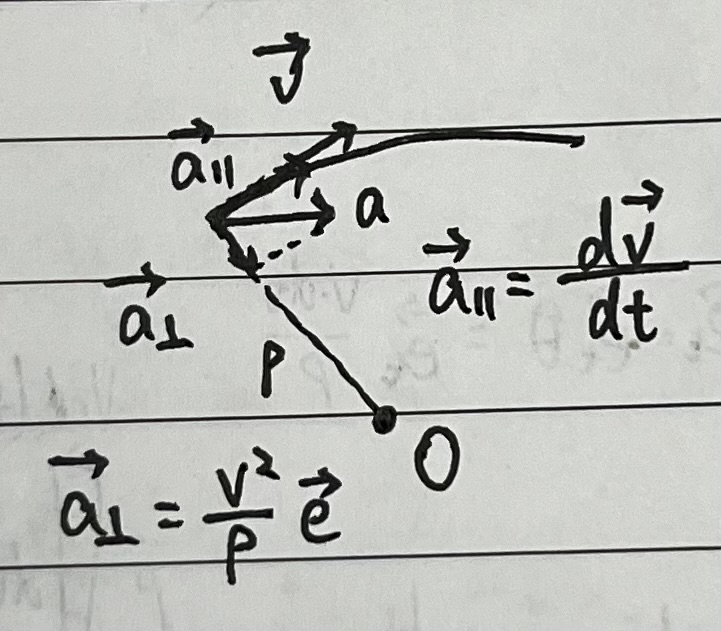 v⃗
a⃗∥
a
a⃗⊥
a⃗∥ = dv⃗/dt
ρ
O
a⃗⊥ = v²/ρ e⃗